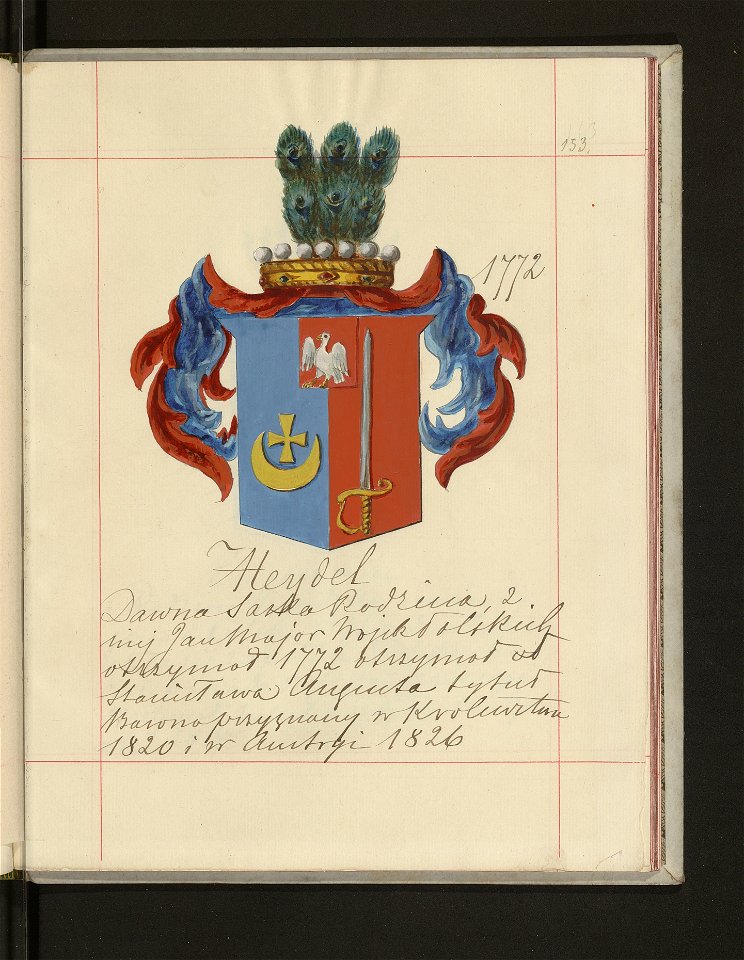 153.
1772
Heydel
Dawna Saska Rodzina, z
niej Jan Major Wojsk Polskich
otrzymał 1772 otrzymał od
Stanisława Augusta tytuł
Barona przyznany w Krolewstwie
1820 i w Austryi 1826